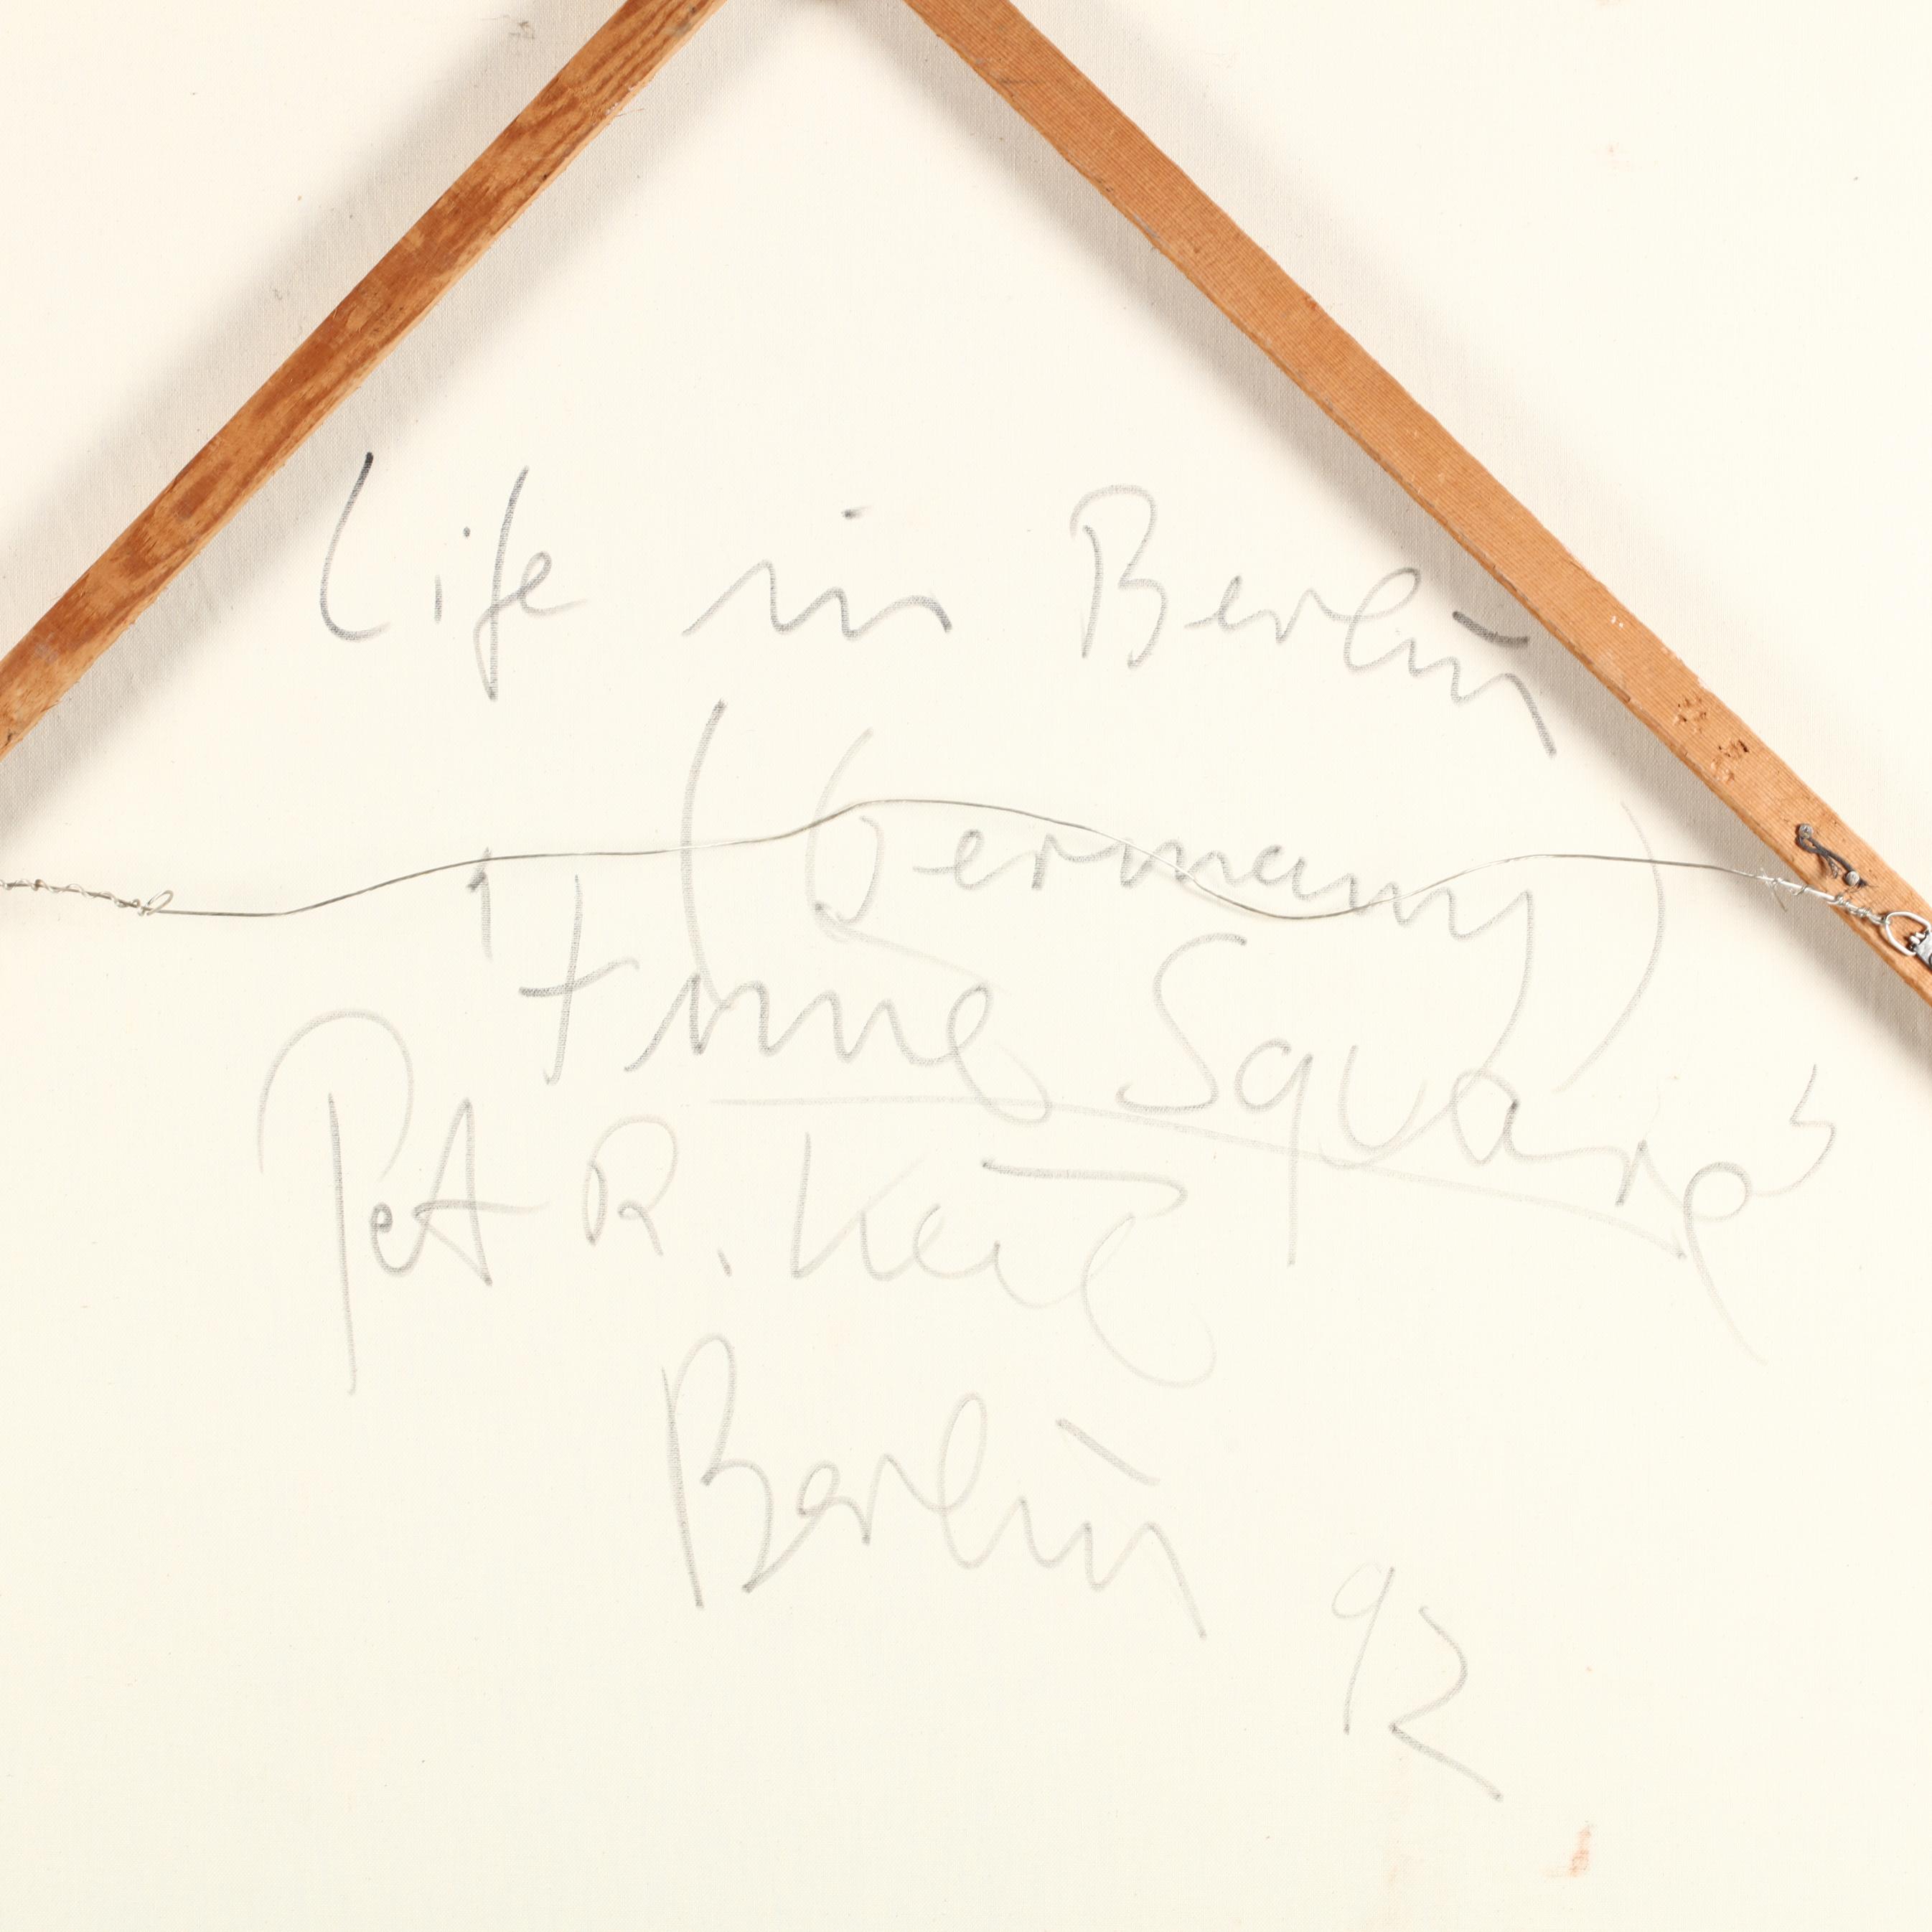 Life in Berlin
(Germany)
'Time Square'
PetA R. Keil
Berlin
92